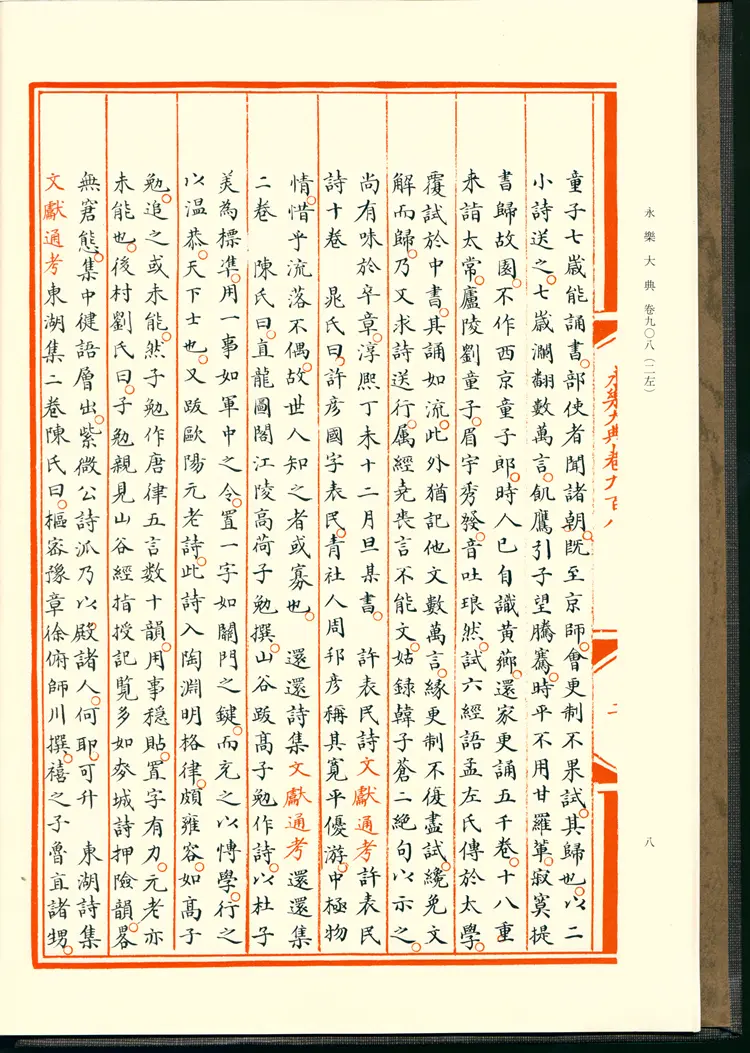 永樂大典 卷九〇八(二左)
八
永樂大典卷九百八
二
童子七歲能誦書部使者聞諸朝既至京師會更制不果試其歸也以二
小詩送之七歲瀾翻數萬言飢鷹引子望騰騫時平不用甘羅輩寂寞提
書歸故園不作西京童子郎時人已自識黃薌還家更誦五千卷十八重
來詣太常廬陵劉童子眉宇秀發音吐琅然試六經語孟左氏傳於太學
覆試於中書其誦如流此外猶記他文數萬言緣更制不復盡試纔免文
解而歸乃又求詩送行属經堯喪言不能文姑録韓子蒼二絶句以示之
尚有味於卒章淳熙丁未十二月旦某書 許表民詩文獻通考許表民
詩十卷 晁氏曰許彥國字表民青社人周邦彥稱其寬平優游中極物
情惜乎流落不偶故世人知之者或寡也 還還詩集文獻通考還還集
二卷 陳氏曰直龍圖閣江陵高荷子勉撰山谷跋髙子勉作詩以杜子
美為標準用一事如軍中之令置一字如關門之鍵而充之以博學行之
以温恭天下士也又跋歐陽元老詩此詩入陶淵明格律頗雍容如髙子
勉追之或未能然子勉作唐律五言數十韻用事穩貼置字有力元老亦
未能也後村劉氏曰子勉親見山谷經指授記覽多如麥城詩押險韻畧
無窘態集中健語層出紫微公詩派乃以殿諸人何耶可升 東湖詩集
文獻通考東湖集二卷陳氏曰樞密豫章徐俯師川撰禧之子魯直諸甥